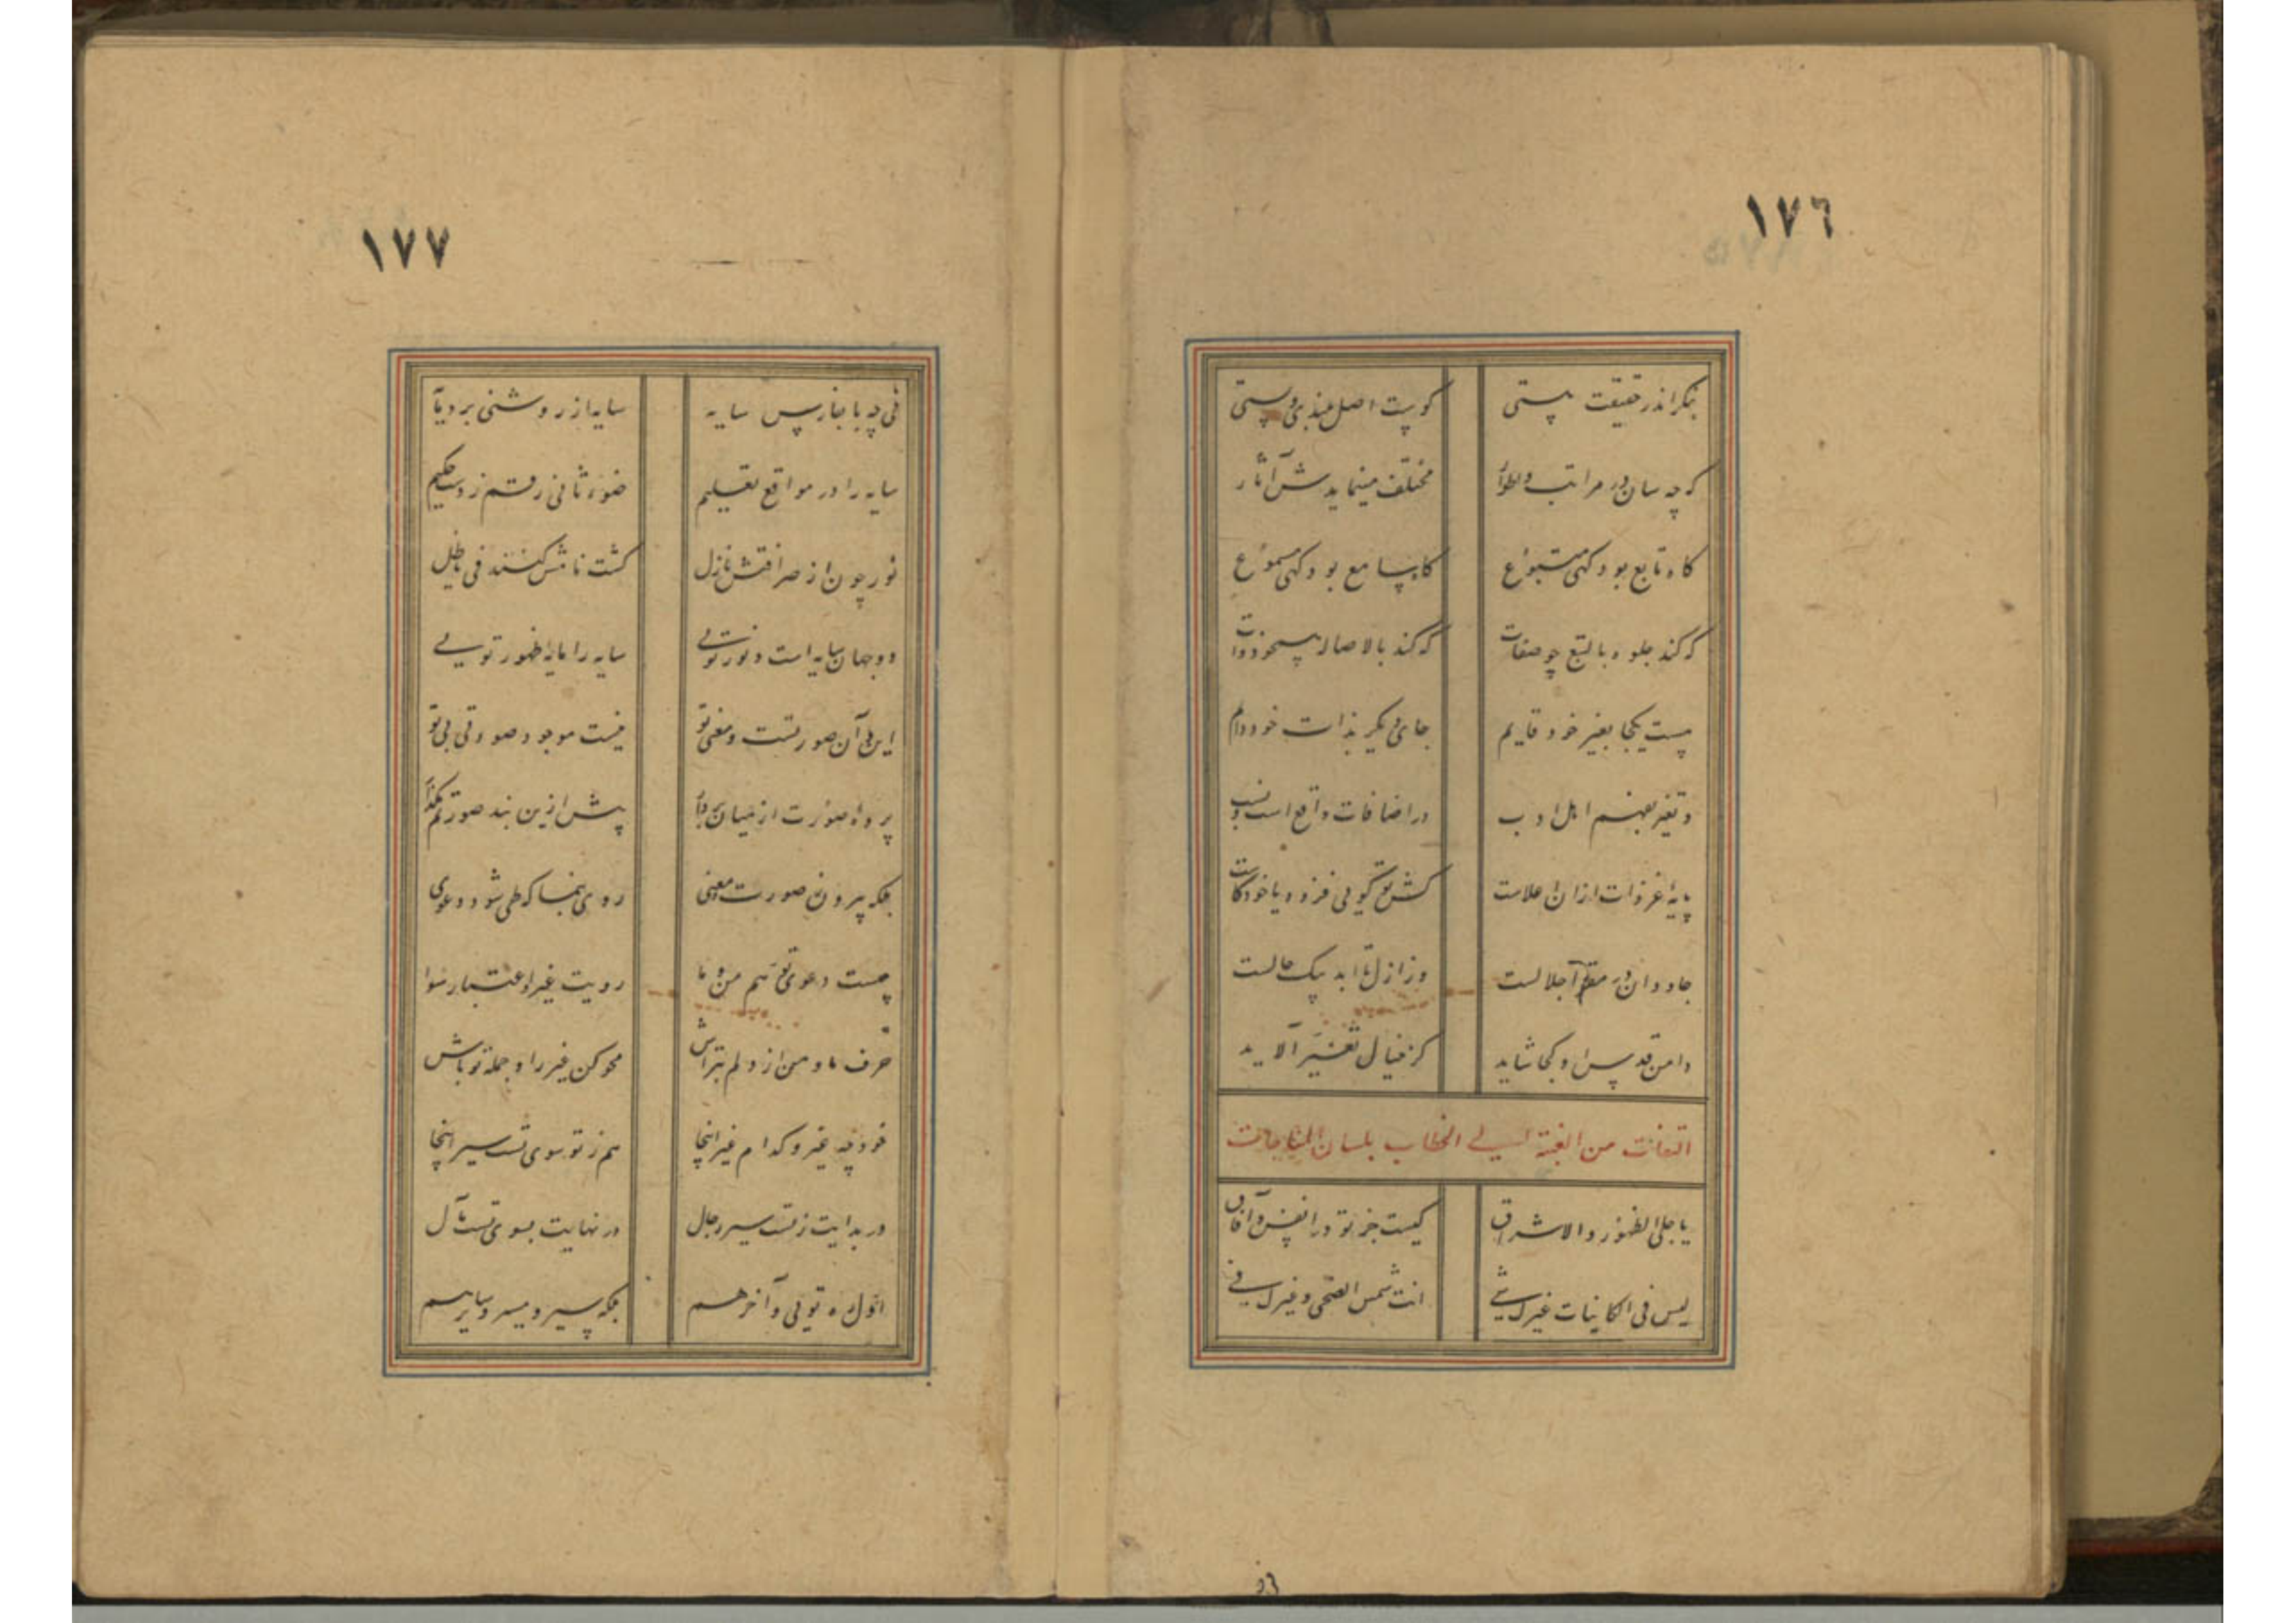 ١٧٦
بنگر اندر حقیقت هستی
کوست اصل بلندی و پستی
که چه سان در مراتب و اطوار
مختلف مینمایدش آثار
گاه تابع بود گهی متبوع
گاه سامع بود گهی مسموع
که کند جلوه بالتبع چو صفات
که کند بالاصاله همچو ذوات
هست یکجا بغیر خود قایم
جای دیگر بذات خود دایم
وین تغیر بفهم اهل ادب
در اضافات واقع است و نسب
پایهٔ عز ذات ازان اعلاست
کش تو گویی فزود یا خود کاست
جاودان در مقام اجلالست
وز ازل تا ابد بیک حالست
دامن قدس او کجا شاید
کز خیال تغیر آلاید
التفات من الغیبة الی الخطاب بلسان المناجات
یا جلی الظهور والاشراق
کیست جز تو در انفس و آفاق
لیس فی الکاینات غیرک شی
انت شمس الضحی و غیرک فی
١٧٧
فی چه باشد بپارسی سایه
سایه از روشنی برد مایه
سایه را در مواقع تعلیم
ضوء ثانی رقم زدست حکیم
نور چون از صرافتش نازل
گشت نامش کنند فی یا ظل
دو جهان سایه است و نور تویی
سایه را مایهٔ ظهور تویی
این و آن صورتست و معنی تو
نیست موجود صورتی بی تو
پردهٔ صورت از میان بردار
پیش ازین بند صورتم مگذار
بلکه بیرون ز صورت و معنی
روی بنما که طی شود دعوی
چیست دعوی توهم من و ما
رویت غیر و اعتبار سوا
حرف ما و من از دلم بتراش
محو کن غیر را و جمله تو باش
خود چه غیر و کدام غیر اینجا
هم ز تو سوی تست سیر اینجا
در بدایت ز تست سیر رجال
در نهایت بسوی تست مآل
اول ره تویی و آخر هم
بلکه سیر و مسیر و سایر هم